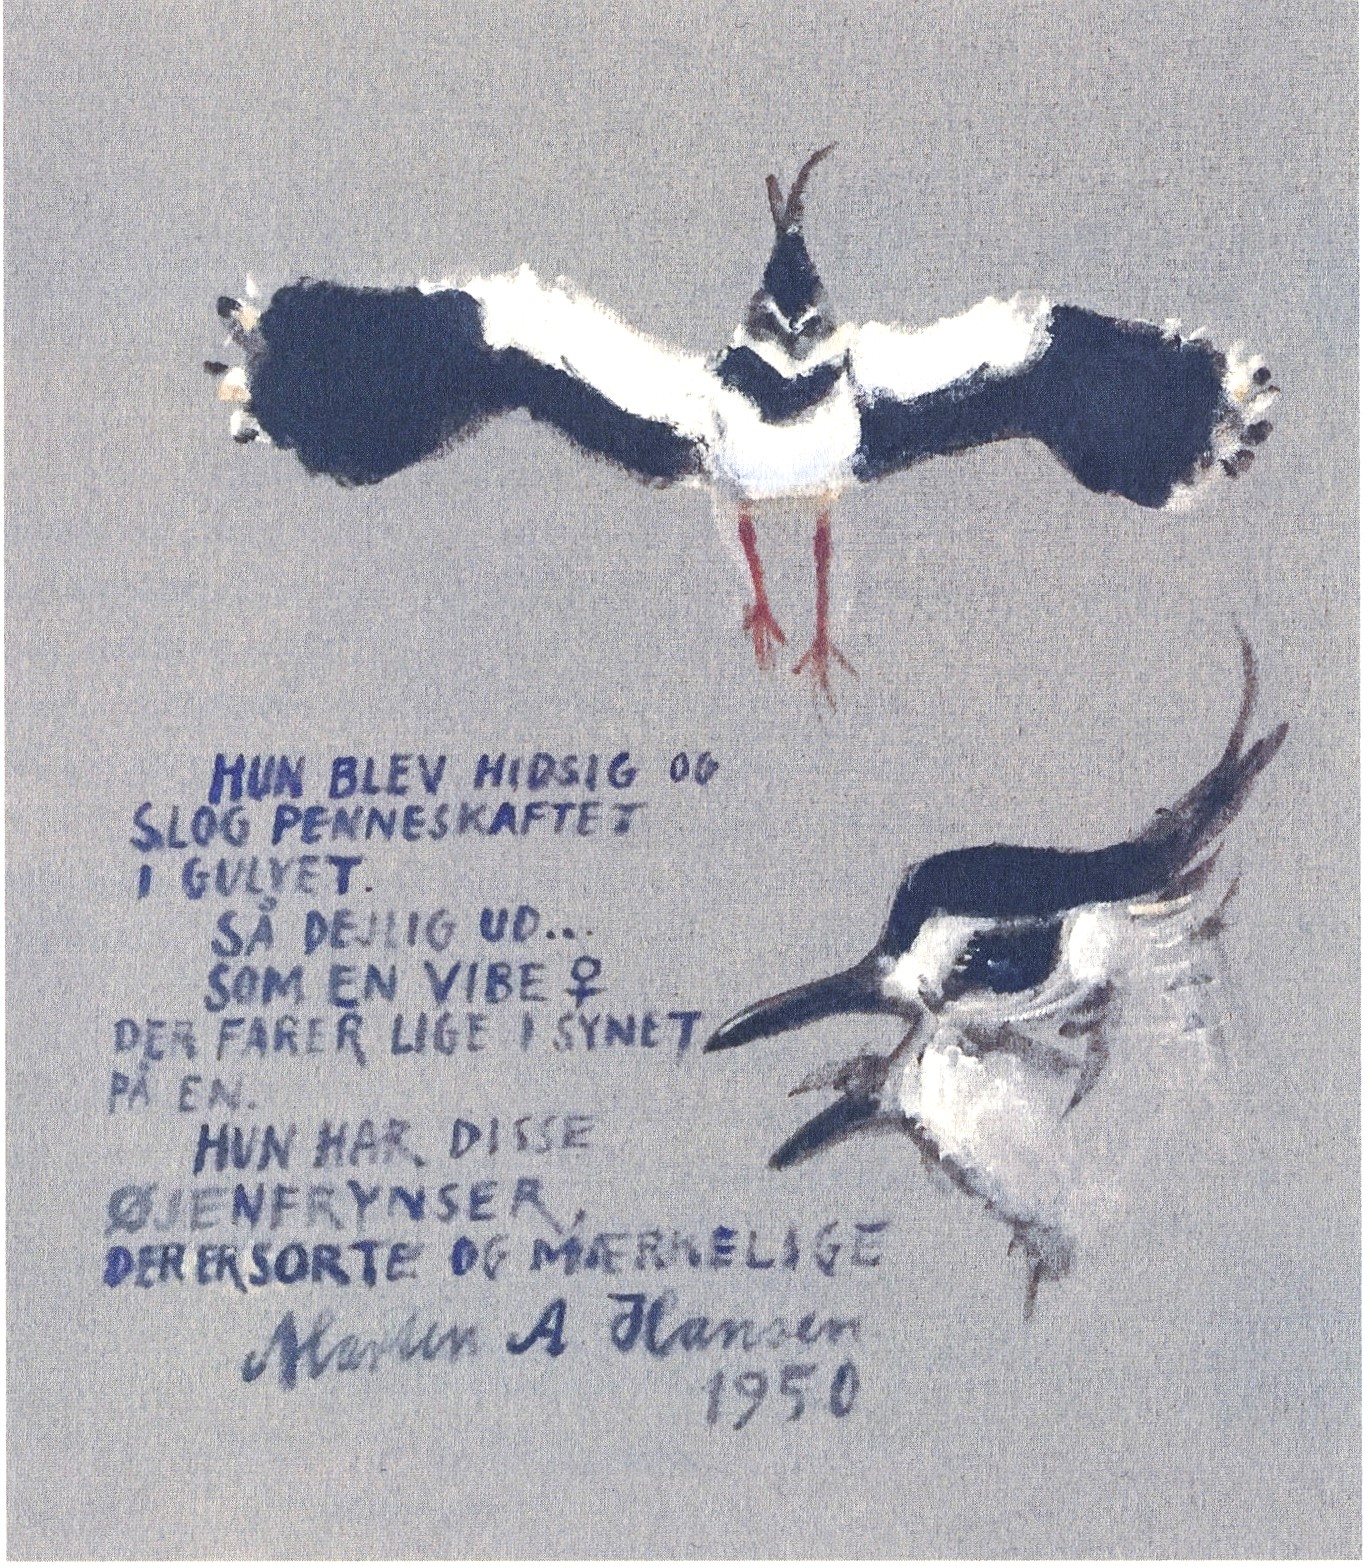 HUN BLEV HIDSIG OG
SLOG PENNESKAFTET
I GULVET.
SÅ DEJLIG UD...
SOM EN VIBE ♀
DER FARER LIGE I SYNET
PÅ EN.
HUN HAR DISSE
ØJENFRYNSER,
DER ER SORTE OG MÆRKELIGE
Martin A Hansen
1950